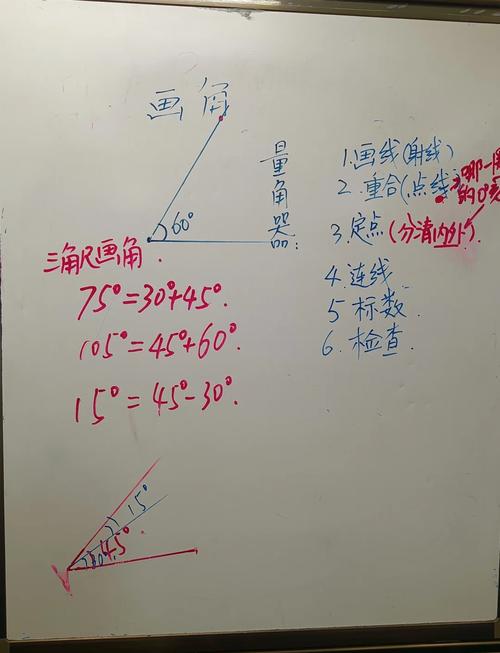 画角
60°
量角器:
1.画线(射线)
2.重合(点线
哪一
的0°
3.定点(分清内外)
4.连线
5 标数
6.检查.
三角尺画角.
75°=30°+45°.
105°=45°+60°.
15°=45°-30°.
15°
45°